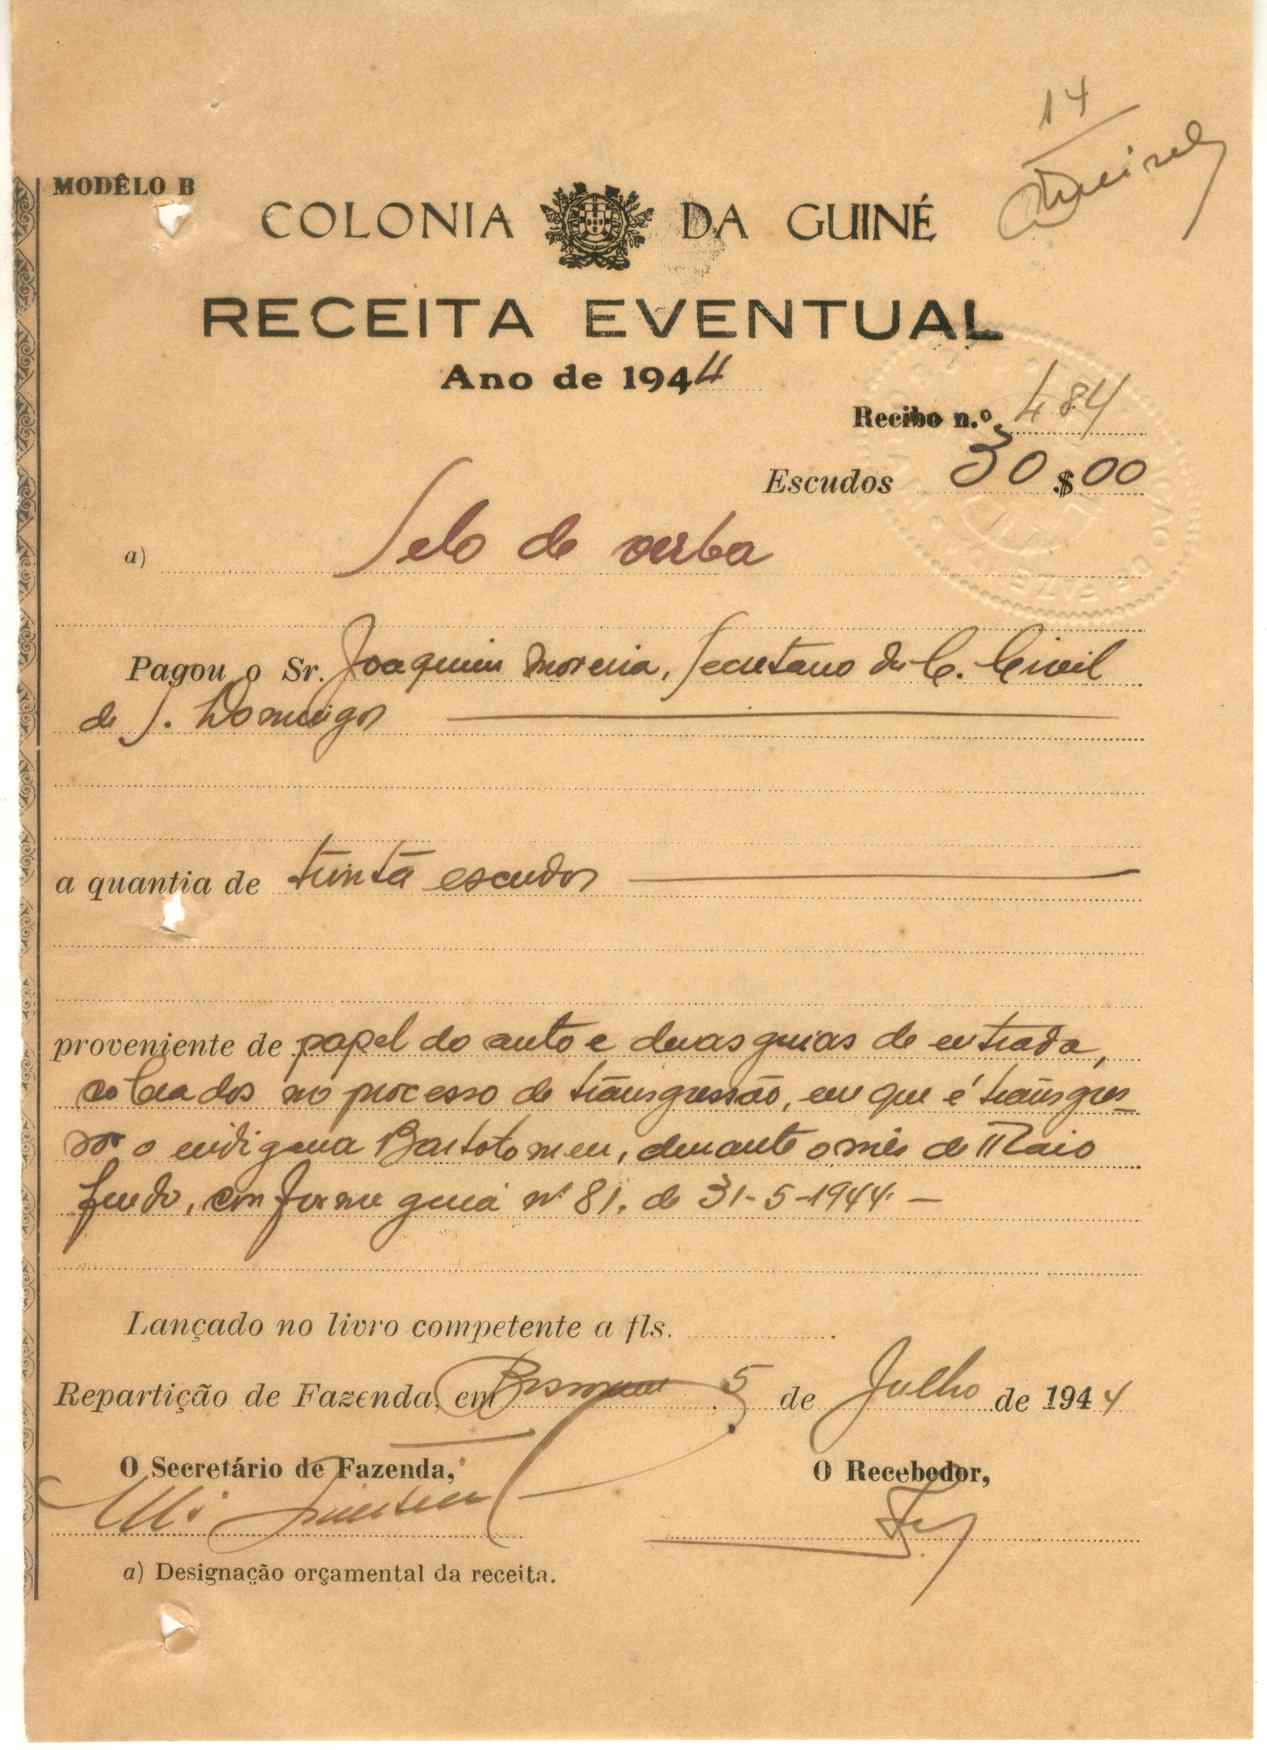 14
MODÊLO B
COLONIA DA GUINÉ
RECEITA EVENTUAL
Ano de 1944
Recibo n.º 484
Escudos 30$00
a) Selo de verba
Pagou o Sr. Joaquim Moreira, Secretario da C. Civil
de S. Domingos
a quantia de trinta escudos
proveniente de papel do auto e duas guias de entrada,
cobrados no processo de transgressão, em que é transgres-
sor o indigena Bartolomeu, durante o mês de Maio
findo, conforme guia nº 81, de 31-5-1944 —
Lançado no livro competente a fls.
Repartição de Fazenda, em 5 de Julho de 1944
O Secretário de Fazenda,
O Recebedor,
a) Designação orçamental da receita.